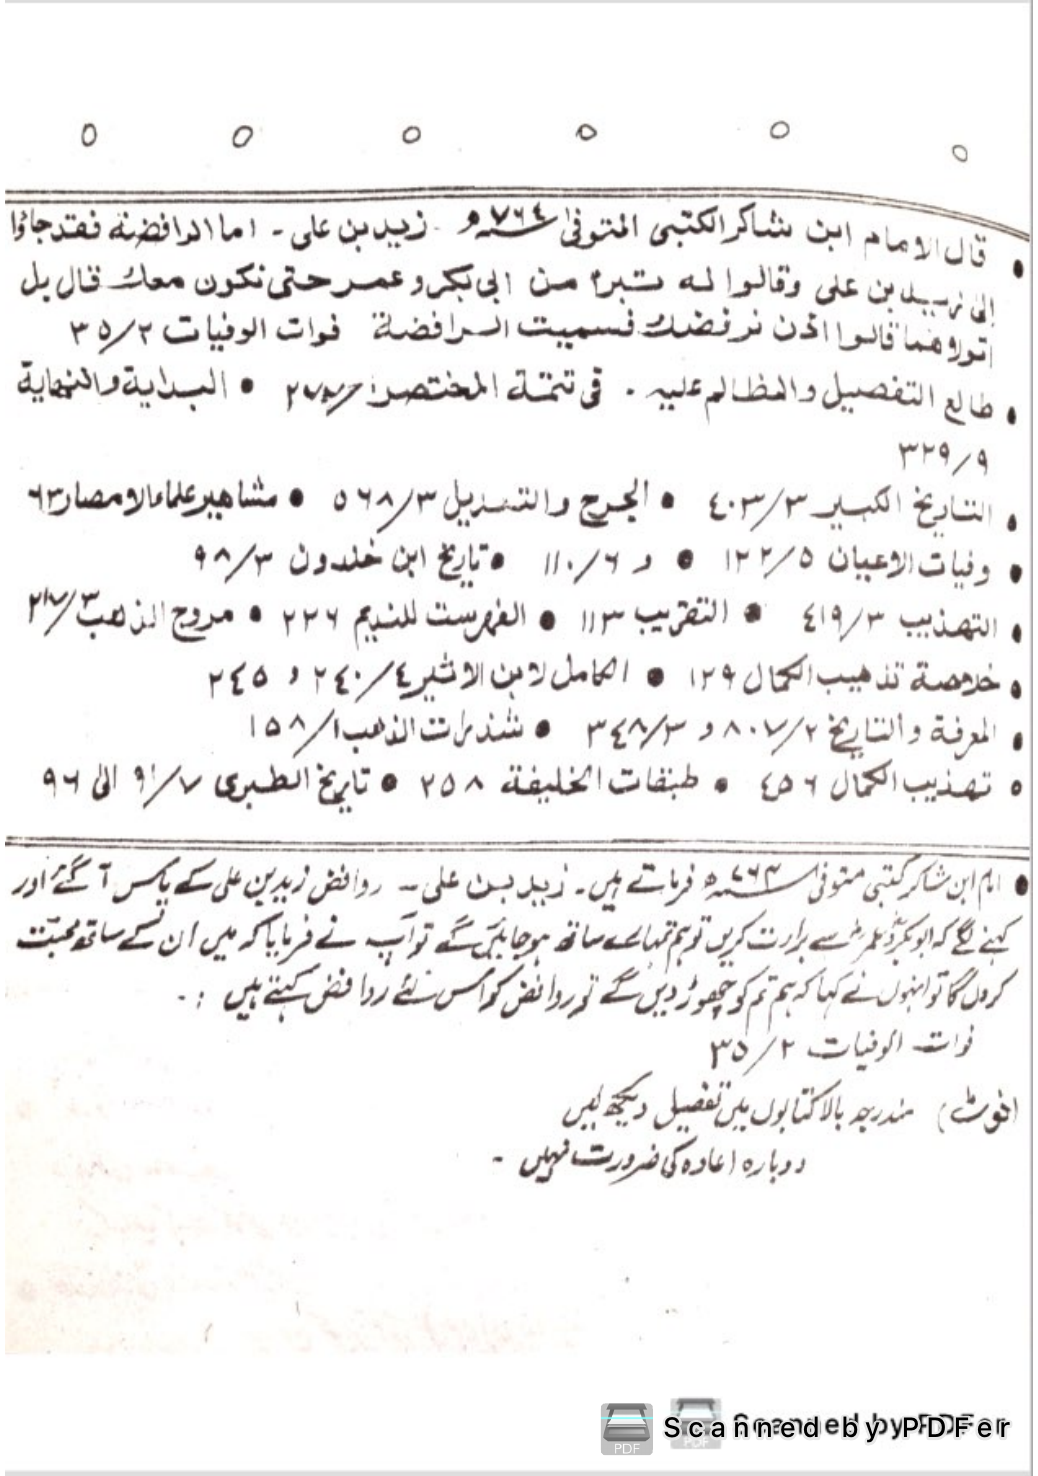 قال الامام ابن شاكر الكتبى المتوفى ٧٦٤ھ - زيد بن على - اما الرافضة فقد جاؤا
الى زيد بن على وقالوا له تبرء من ابى بكر وعمر حتى نكون معك قال بل
اتولاهما قالوا اذن نرفضك فسميت الرافضة فوات الوفيات ٢/٣٥
• طالع التفصيل والمظالم عليه - فى تتمة المختصر • البداية والنهاية
٩/٣٢٩
• التاريخ الكبير ٣/٤٠٣ • الجرح والتعديل ٣/٥٦٨ • مشاهير علماء الامصار ٦٣
• وفيات الاعيان ٥/١٢٢ • و ٦/١١٠ • تاريخ ابن خلدون ٣/٩٨
• التهذيب ٣/٤١٩ • التقريب ١١٣ • الفهرست للنديم ٢٢٦ • مروج الذهب ٣/
• خلاصة تذهيب الكمال ١٢٩ • الكامل لابن الاثير ٤/٢٤٠ و ٢٤٥
• المعرفة والتاريخ ٢/٨٠٧ و ٣/٣٤٨ • شذرات الذهب ١/١٥٨
• تهذيب الكمال ٤٥٦ • طبقات الخليفة ٢٥٨ • تاريخ الطبرى ٧/٩١ الى ٩٦
• امام ابن شاكر کتبی متوفی ٧٦٤ھ فرماتے ہیں - زید بن علی - روافض زید بن علی کے پاس آگئے اور
کہنے لگے کہ ابوبکرؓ و عمرؓ سے برارت کریں تو ہم تمہارے ساتھ ہو جائیں گے تو آپ نے فرمایا کہ میں ان کے ساتھ محبت
کروں گا تو انہوں نے کہا کہ ہم تم کو چھوڑ دیں گے تو روافض کو اس لئے روافض کہتے ہیں :-
فوات الوفیات ٢/٣٥
(نوٹ) مندرجہ بالا کتابوں میں تفصیل دیکھ لیں
دوبارہ اعادہ کی ضرورت نہیں -
Scanned by PDFer
Scanned by PDFer